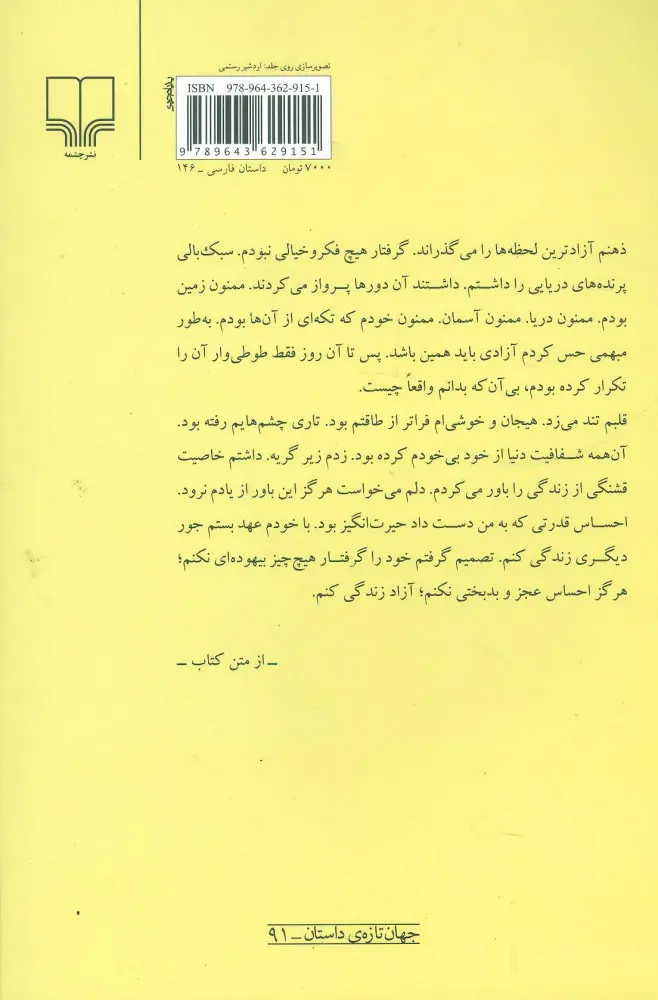 تصویرسازی روی جلد: اردشیر رستمی
ISBN 978-964-362-915-1
9 789643 629151
۷۰۰۰ تومان
داستان فارسی ــ ۱۴۶
نشرچشمه
ذهنم آزادترین لحظه‌ها را می‌گذراند. گرفتار هیچ فکروخیالی نبودم. سبک‌بالی
پرنده‌های دریایی را داشتم. داشتند آن دورها پرواز می‌کردند. ممنون زمین
بودم. ممنون دریا. ممنون آسمان. ممنون خودم که تکه‌ای از آن‌ها بودم. به‌طور
مبهمی حس کردم آزادی باید همین باشد. پس تا آن روز فقط طوطی‌وار آن را
تکرار کرده بودم، بی‌آن‌که بدانم واقعاً چیست.
قلبم تند می‌زد. هیجان و خوشی‌ام فراتر از طاقتم بود. تاری چشم‌هایم رفته بود.
آن‌همه شفافیت دنیا از خود بی‌خودم کرده بود. زدم زیر گریه. داشتم خاصیت
قشنگی از زندگی را باور می‌کردم. دلم می‌خواست هرگز این باور از یادم نرود.
احساس قدرتی که به من دست داد حیرت‌انگیز بود. با خودم عهد بستم جور
دیگری زندگی کنم. تصمیم گرفتم خود را گرفتار هیچ‌چیز بیهوده‌ای نکنم؛
هرگز احساس عجز و بدبختی نکنم؛ آزاد زندگی کنم.
ــ از متن کتاب ــ
جهان تازه‌ی داستان ــ ۹۱